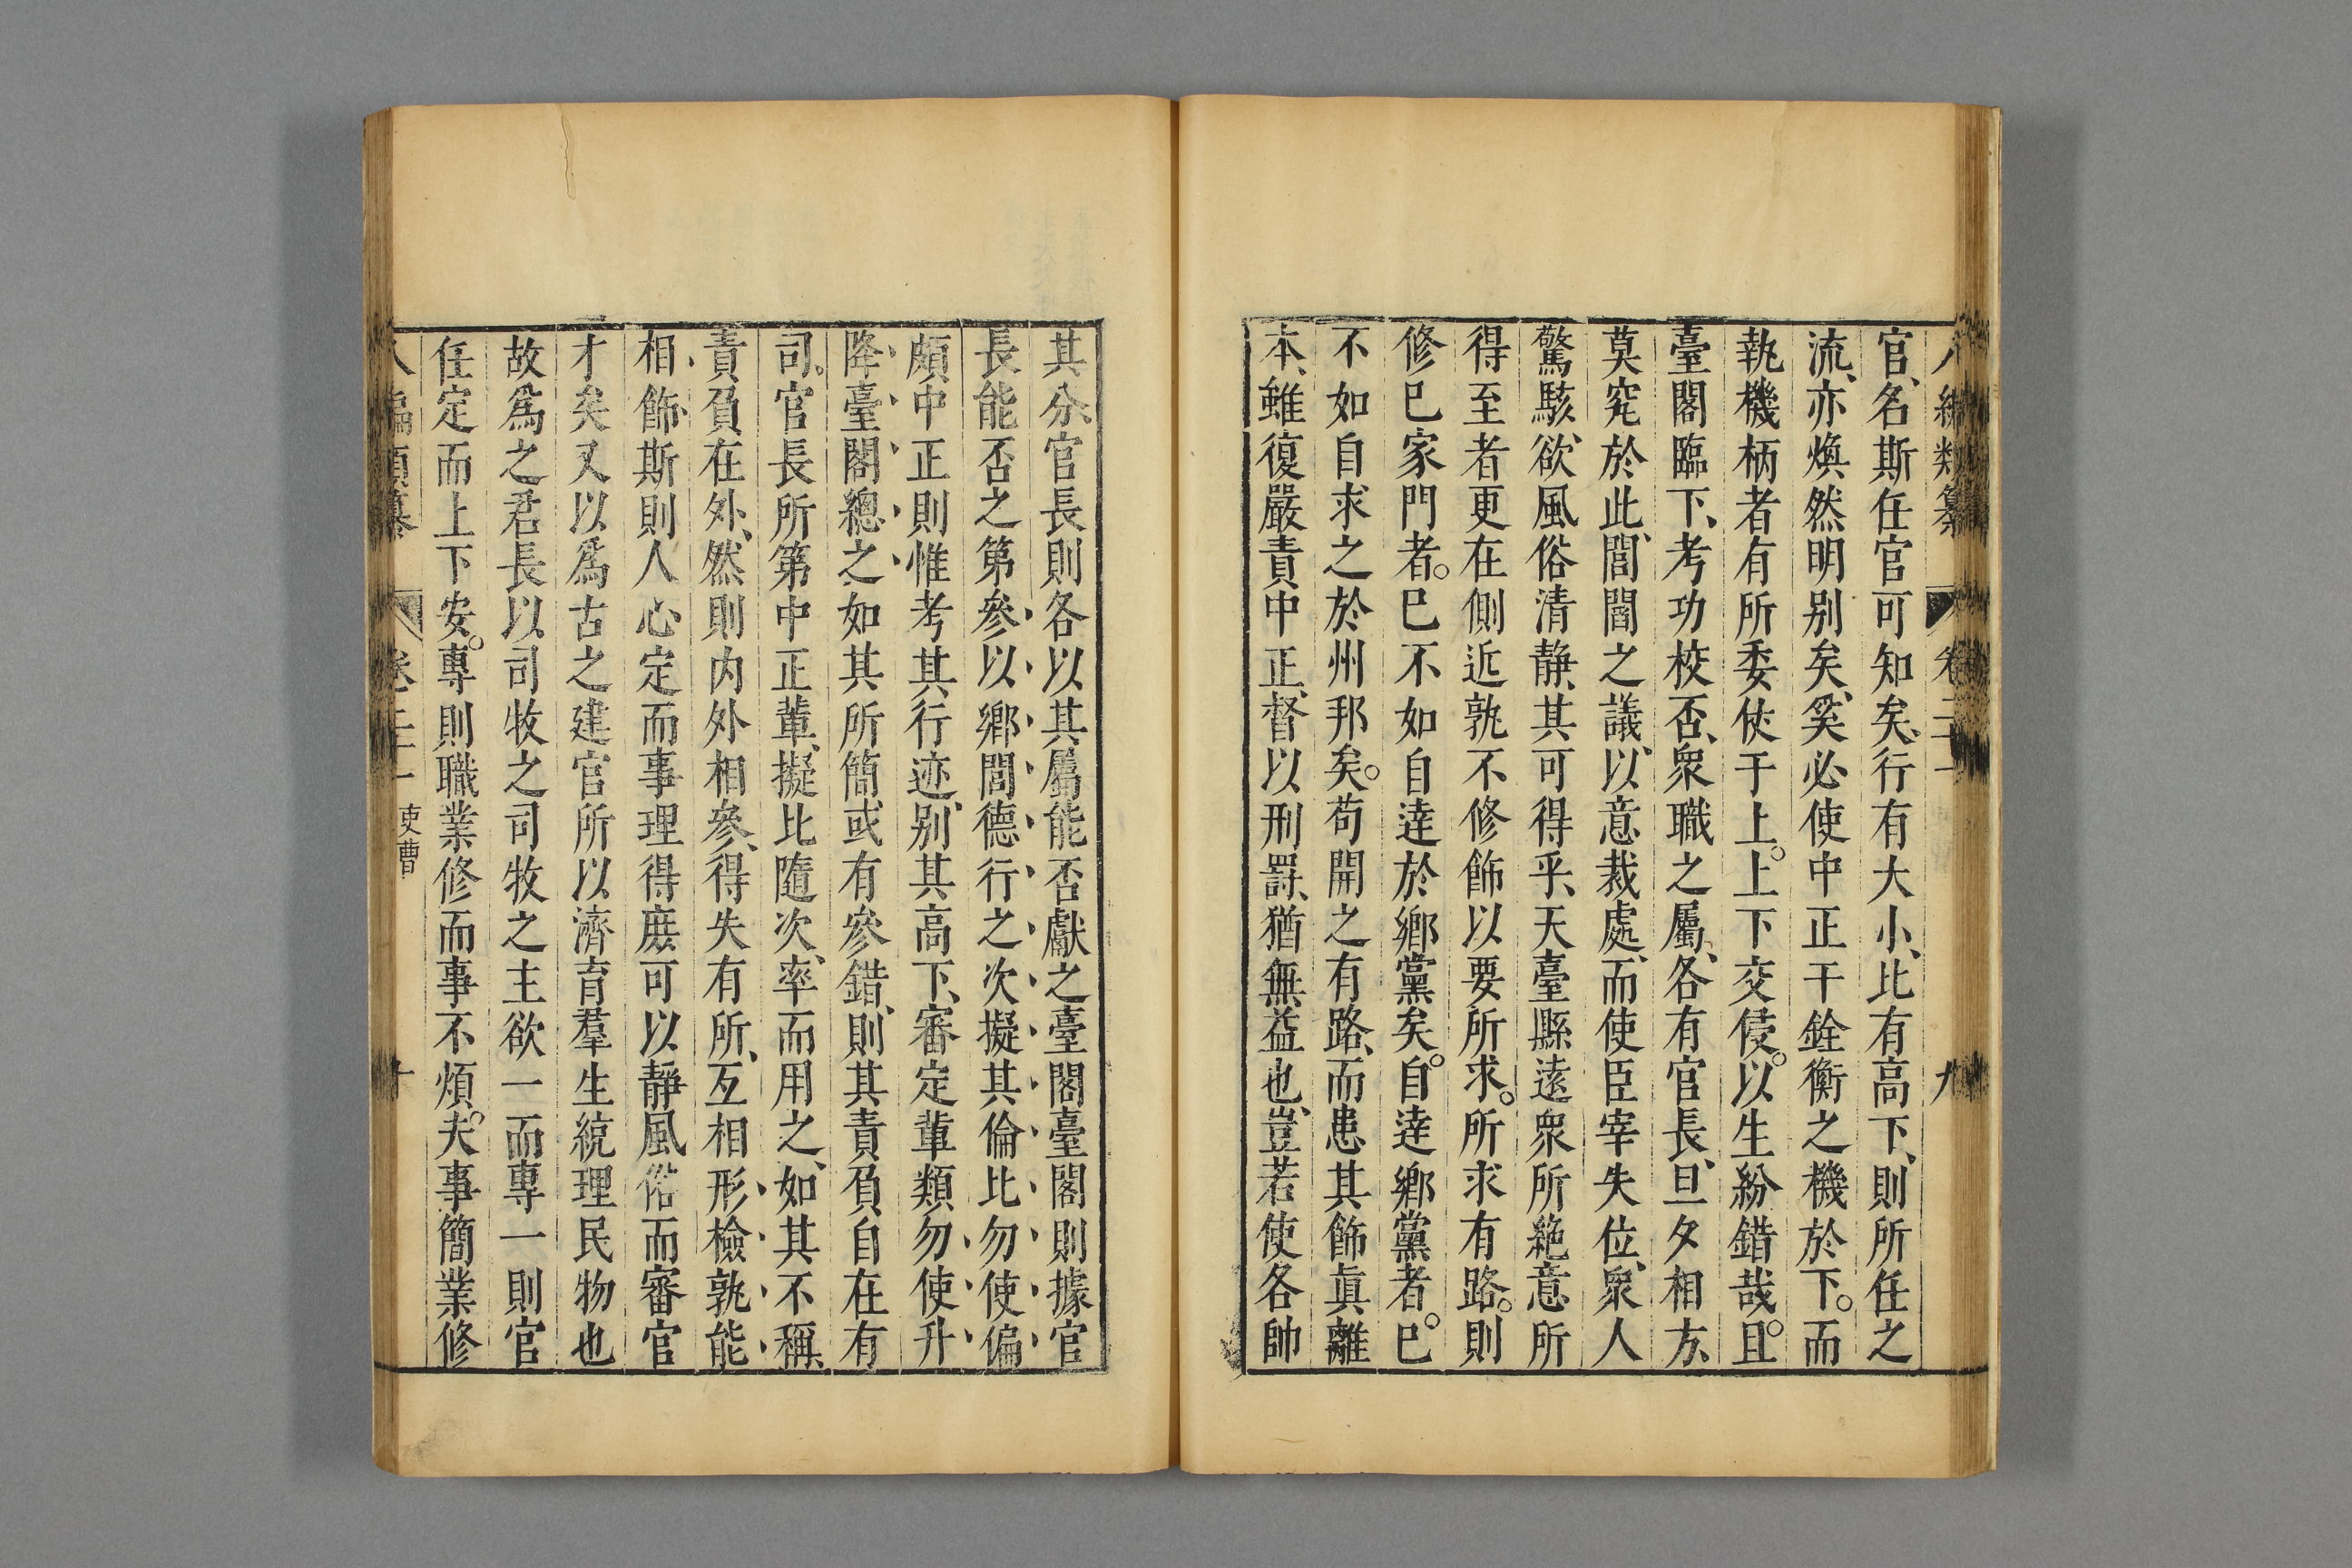 八編類纂 卷二十一 九
官、名斯任官可知矣、行有大小、比有高下、則所任之
流、亦煥然明别矣、奚必使中正干銓衡之機於下。而
執機柄者有所委仗于上。上下交侵。以生紛錯哉。且
臺閣臨下、考功校否、衆職之屬、各有官長、旦夕相方、
莫究於此、閭閻之議、以意裁處、而使臣宰失位、衆人
驚駭、欲風俗清静、其可得乎、天臺縣遠衆所絶意所
得至者更在側近孰不修飾以要所求。所求有路。則
修已家門者。已不如自達於鄉黨矣。自達鄉黨者。已
不如自求之於州邦矣。苟開之有路、而患其飾眞離
本、雖復嚴責中正、督以刑罸、猶無益也、豈若使各帥
其分、官長則各以其屬能否獻之臺閣臺閣則據官
長能否之第參以鄉閭德行之次擬其倫比勿使偏
頗中正則惟考其行迹、别其高下、審定輩類勿使升
降臺閣總之如其所簡或有參錯、則其責負自在有
司。官長所第中正輩、擬比隨次、率而用之、如其不稱、
責負在外、然則内外相參、得失有所、互相形檢孰能
相飾斯則人心定而事理得庶可以靜風俗而審官
才矣又以爲古之建官所以濟育羣生統理民物也
故爲之君長以司牧之司牧之主欲一而專一則官
任定而上下安。專則職業修而事不煩。夫事簡業修
八編類纂 卷二十一 吏曹 十